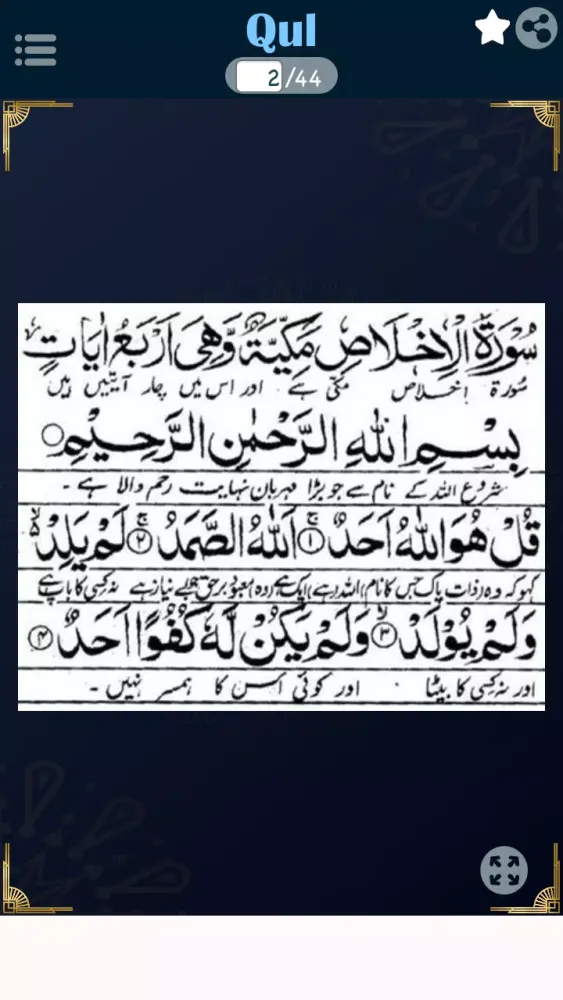 Qul
2/44
سُوْرَةُ الْاِخْلَاصِ مَكِّيَّةٌ وَّهِيَ اَرْبَعُ اٰيَاتٍ
سُورۃ اخلاص مکی ہے اور اس میں چار آیتیں ہیں
بِسْمِ اللّٰهِ الرَّحْمٰنِ الرَّحِيْمِ
شروع اللہ کے نام سے جو بڑا مہربان نہایت رحم والا ہے ۔
قُلْ هُوَ اللّٰهُ اَحَدٌ ۚ‏﴿۱﴾ اَللّٰهُ الصَّمَدُ ۚ‏﴿۲﴾ لَمْ يَلِدْ ۙ۬
کہو کہ وہ (ذات پاک جس کا نام) اللہ (ہے) ایک ہے (وہ) معبود برحق جو بے نیاز ہے نہ کسی کا باپ ہے
وَلَمْ يُوْلَدْ ۙ‏﴿۳﴾ وَلَمْ يَكُنْ لَّهٗ كُفُوًا اَحَدٌ ﴿۴﴾
اور نہ کسی کا بیٹا اور کوئی اس کا ہمسر نہیں ۔